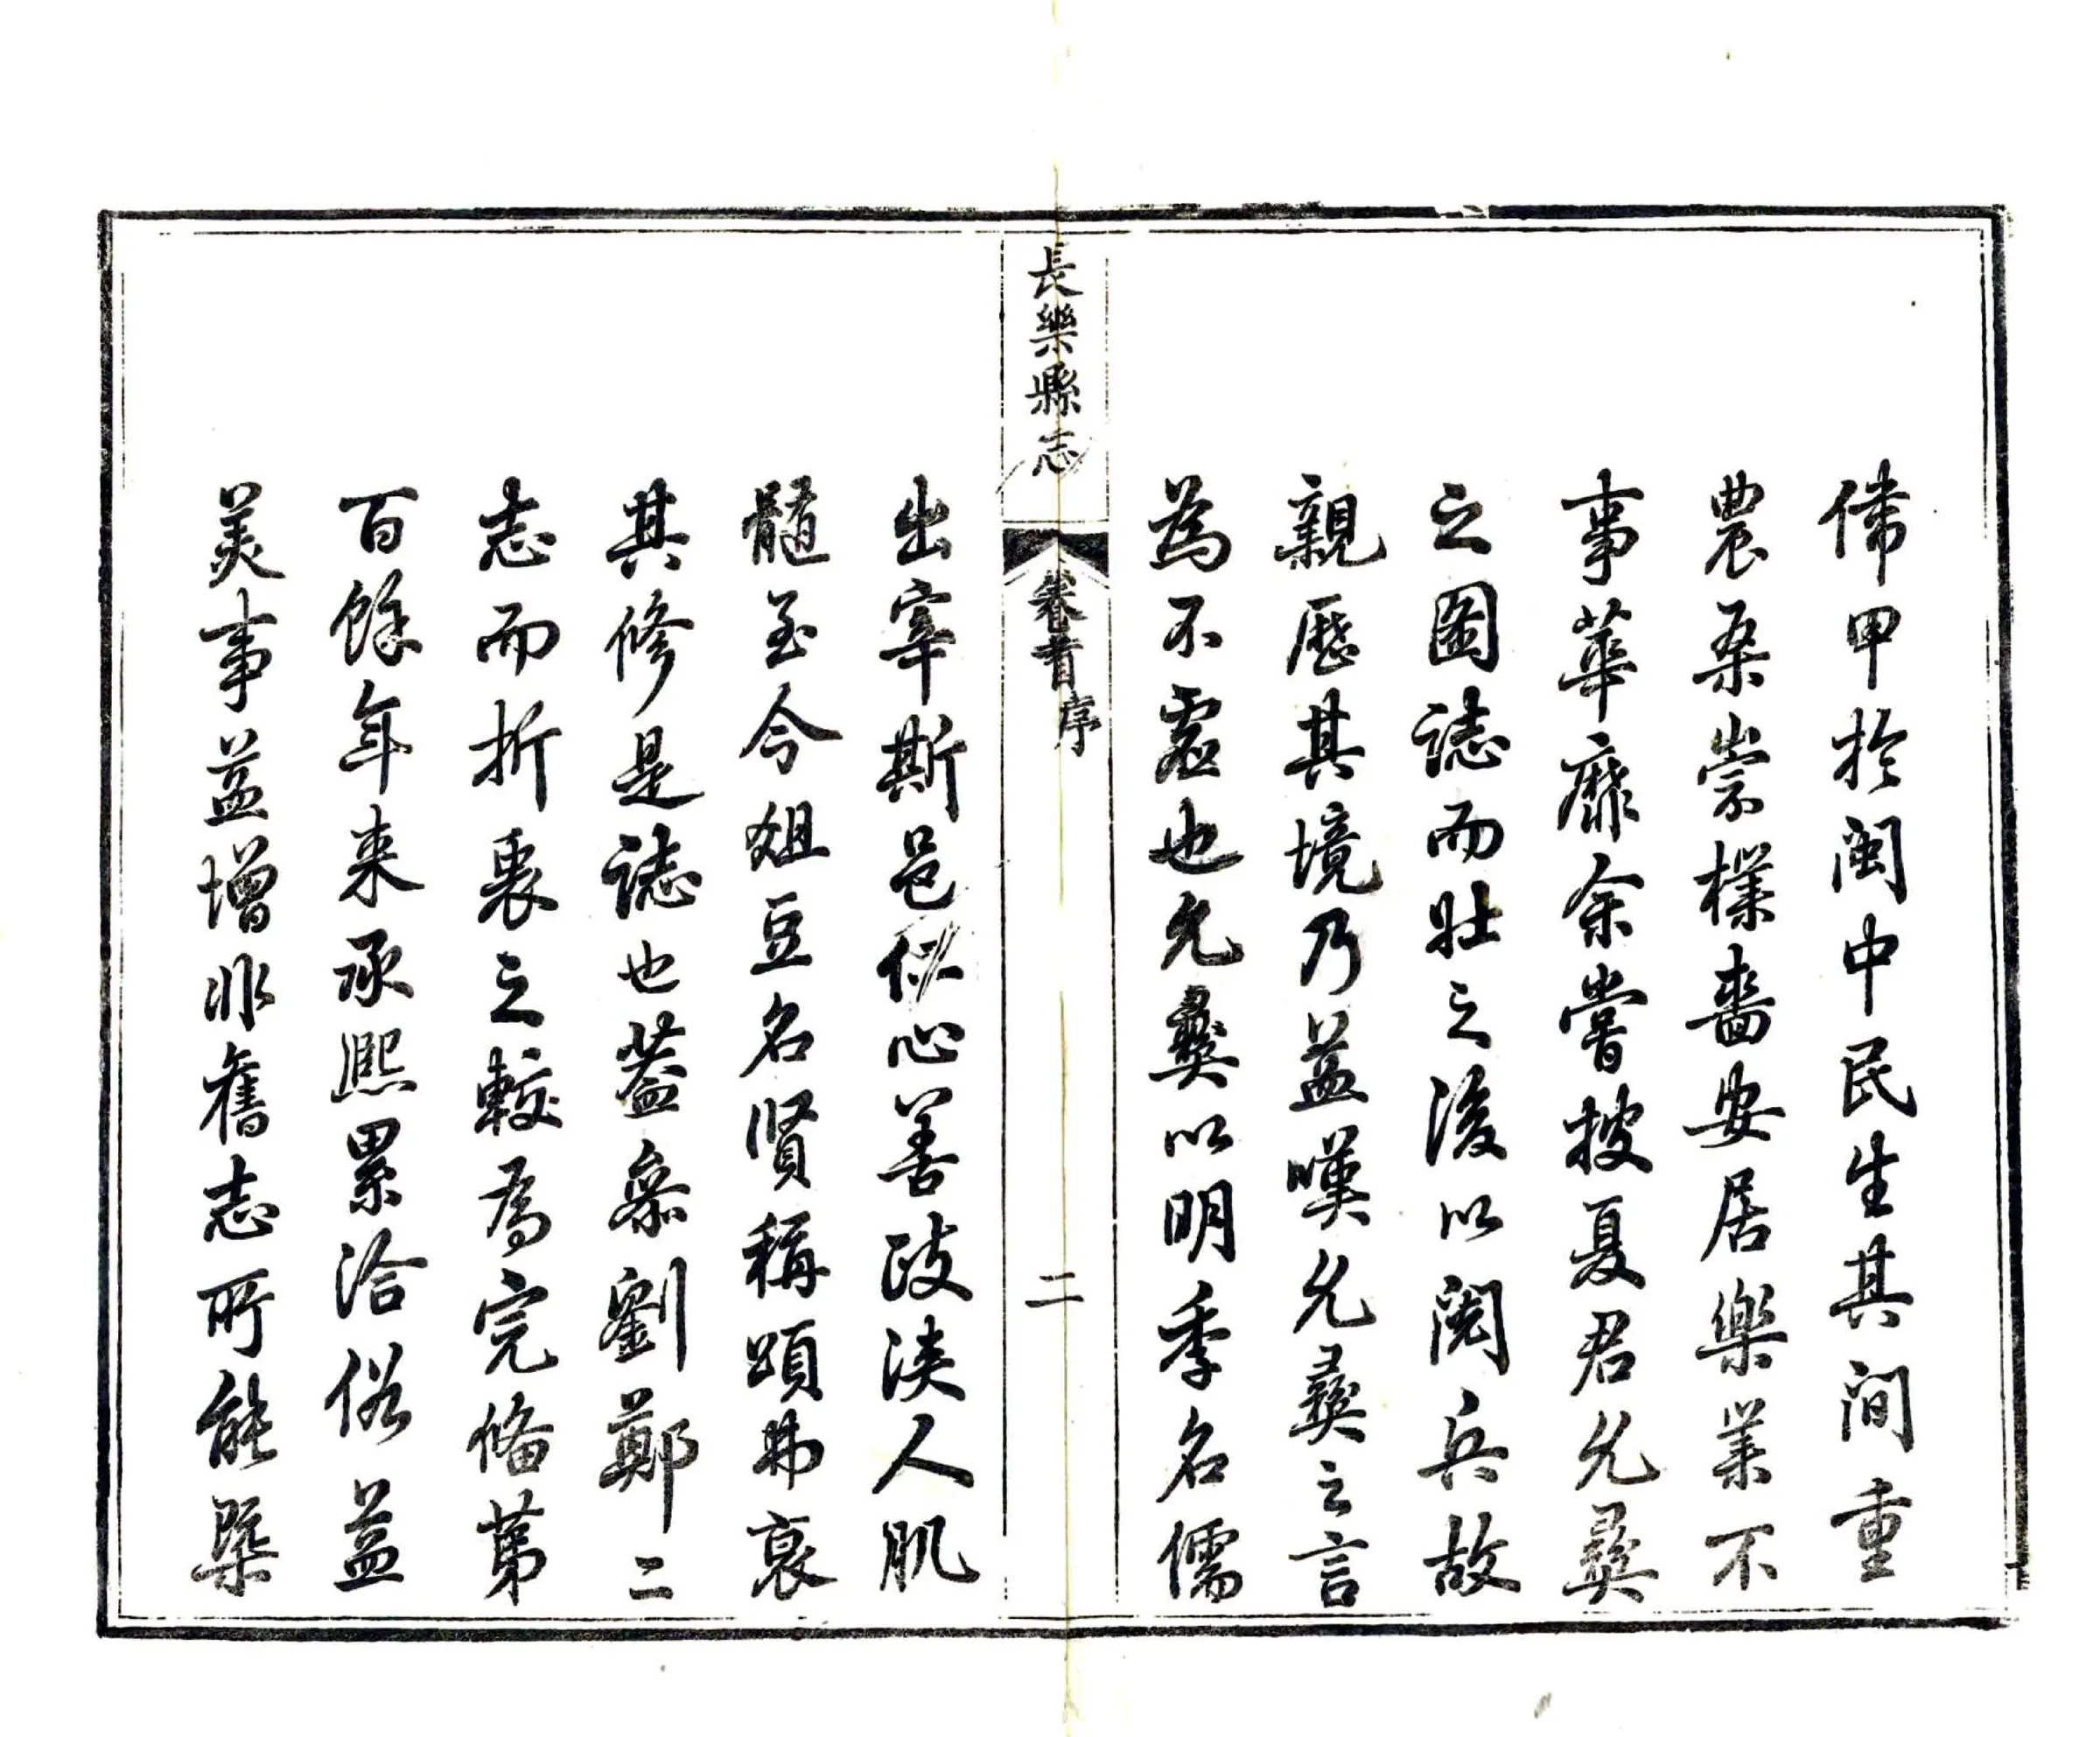 偉甲於閩中民生其間重
農桑崇樸嗇安居樂業不
事華靡余嘗披夏君允彝
之圖誌而壯之後以閱兵故
親歷其境乃益嘆允彝之言
為不虛也允彝以明季名儒
長樂縣志
卷首
序
二
出宰斯邑仁心善政浹人肌
髓至今俎豆名賢稱頌弗衰
其修是誌也蓋參劉鄭二
志而折衷之較為完備第
百餘年來承熙累洽俗益
美事益增非舊志所能槩